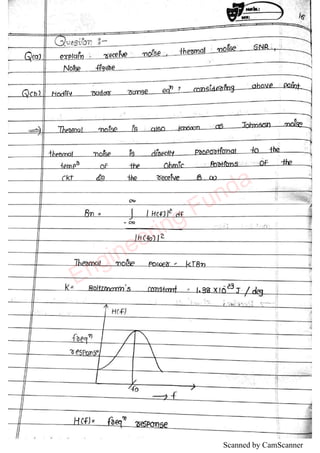 Question :-
Q(a) explain : receive noise, thermal noise SNR,
Noise figure
Q(b) Modify radar range eqn ? considering above point
⇒ Thermal noise is also known as Johnson noise
thermal noise is directly proportional to the
tempn of the Ohmic portions of the
ckt do the receive B.ω
Bn = ∞ ∫ -∞ |H(f)|² df
|H(fo)|²
Thermal noise power = kTBn
k = Boltzmann's constant = 1.38 × 10⁻²³ J / deg
H(f)
freqn
response
fo
→ f
H(f) = freqn response
Engineering Funda
Scanned by CamScanner